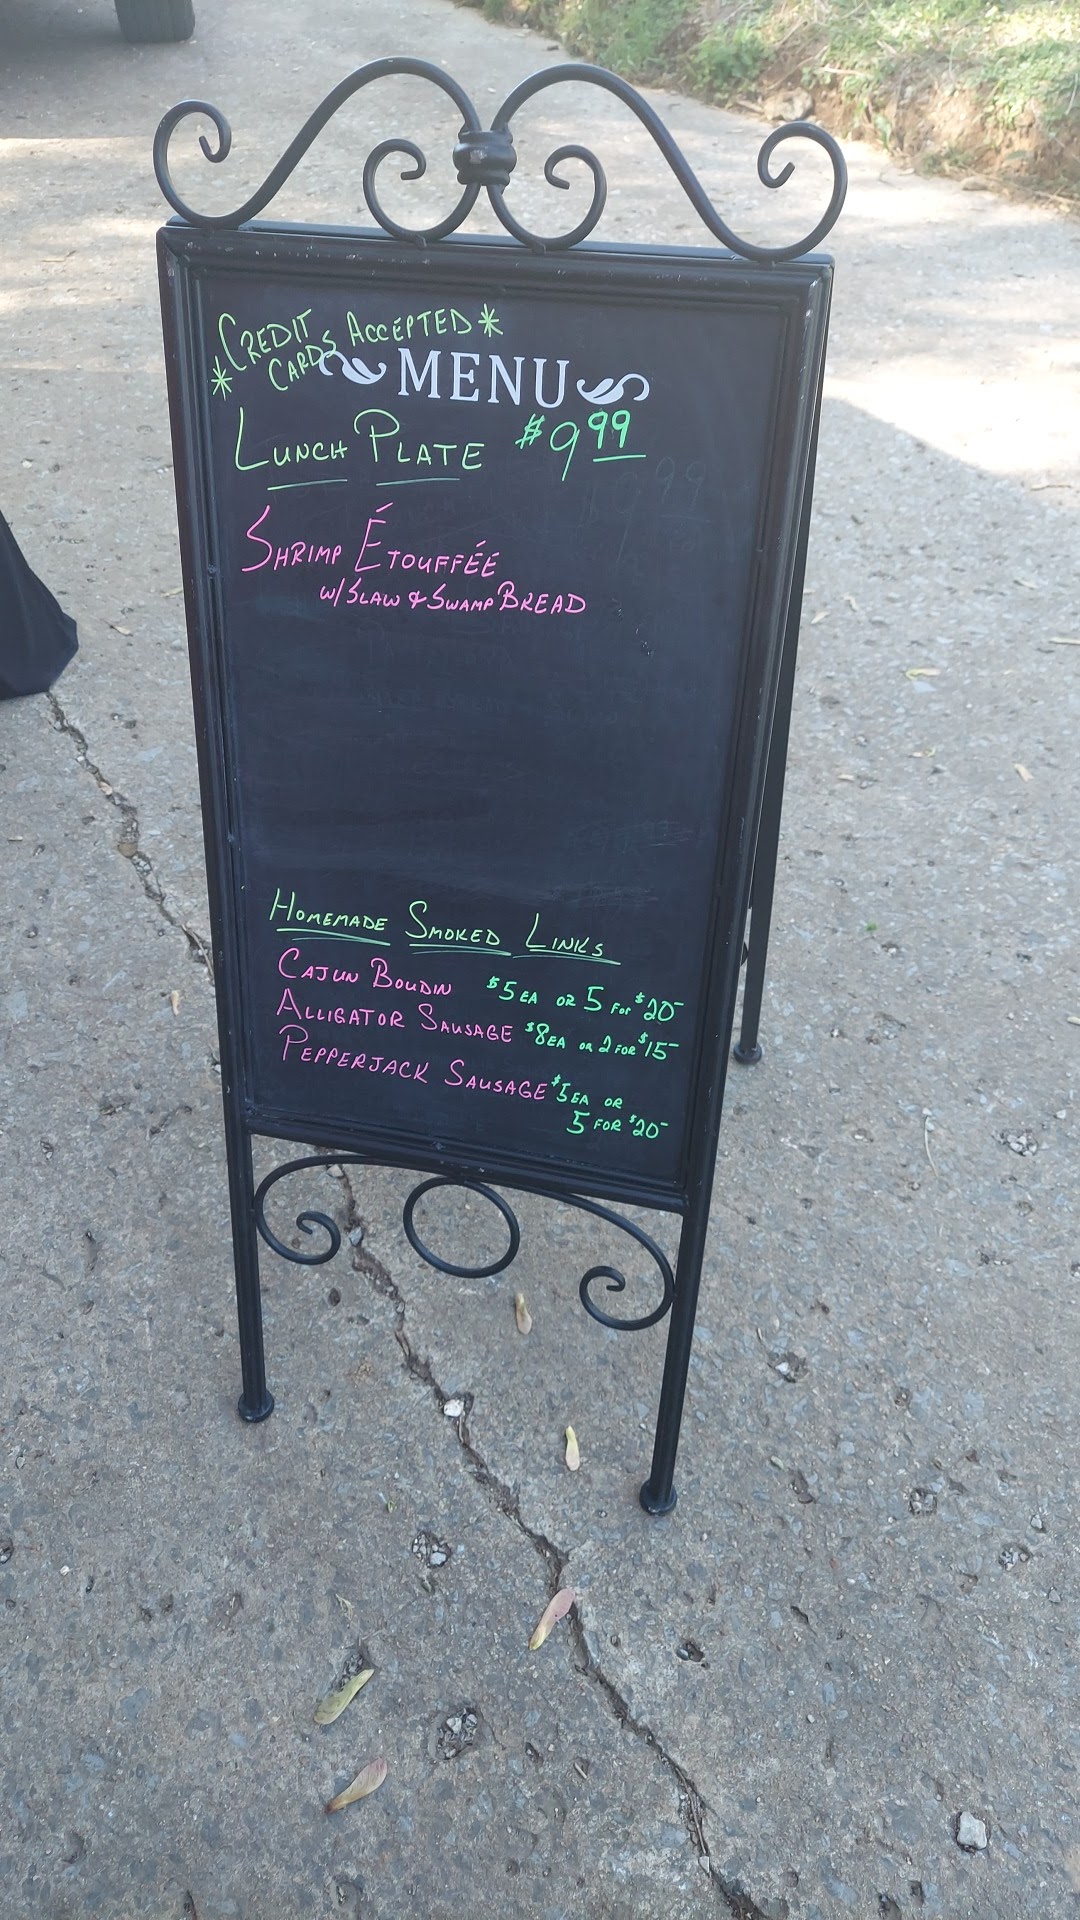 *CREDIT
CARDS ACCEPTED*
MENU
LUNCH PLATE $9.99
SHRIMP ÉTOUFFÉE
W/SLAW & SWAMP BREAD
HOMEMADE SMOKED LINKS
CAJUN BOUDIN $5 EA OR 5 FOR $20-
ALLIGATOR SAUSAGE $8EA OR 2 FOR $15-
PEPPERJACK SAUSAGE $5EA OR
5 FOR $20-